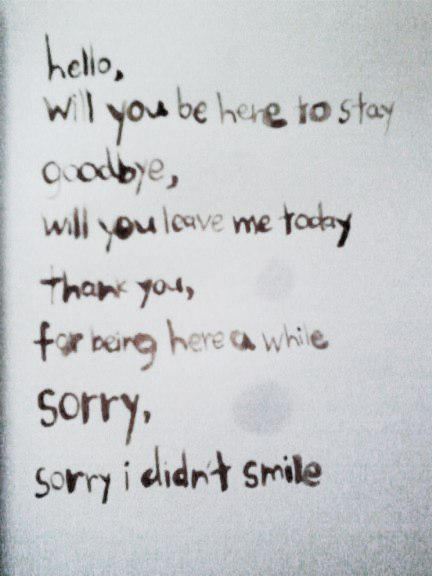 hello,
will you be here to stay
goodbye,
will you leave me today
thank you,
for being here a while
sorry,
sorry i didn't smile